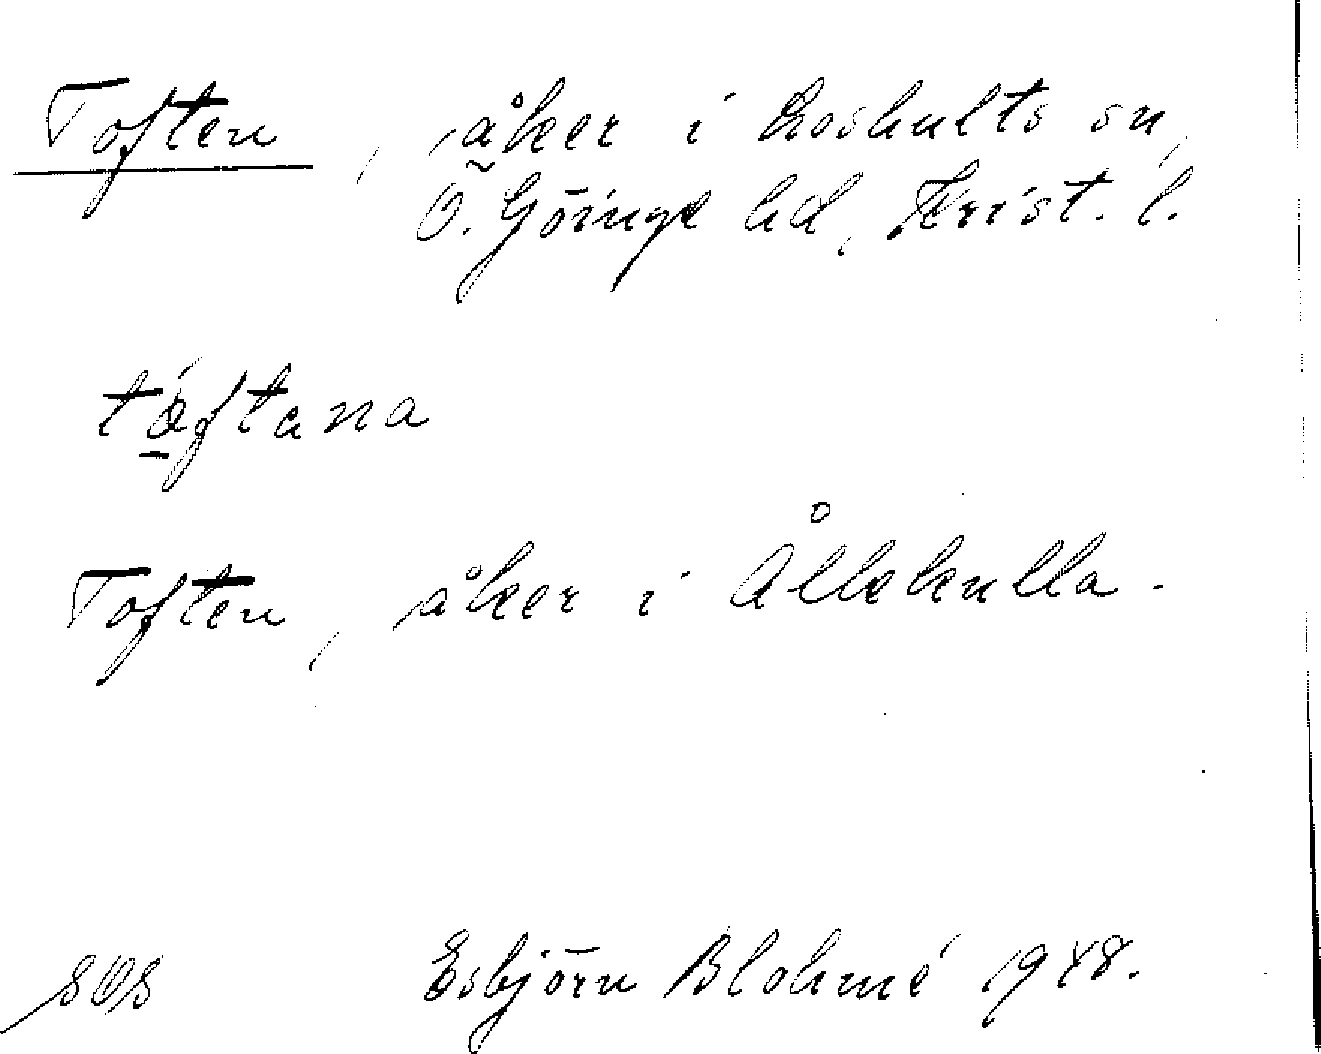 Toften, åker i Loshults sn,
Ö. Göinge hd, Krist. l.
táftana
Toften, åker i Ållekulla.
SOS Esbjörn Blohmé 1948.